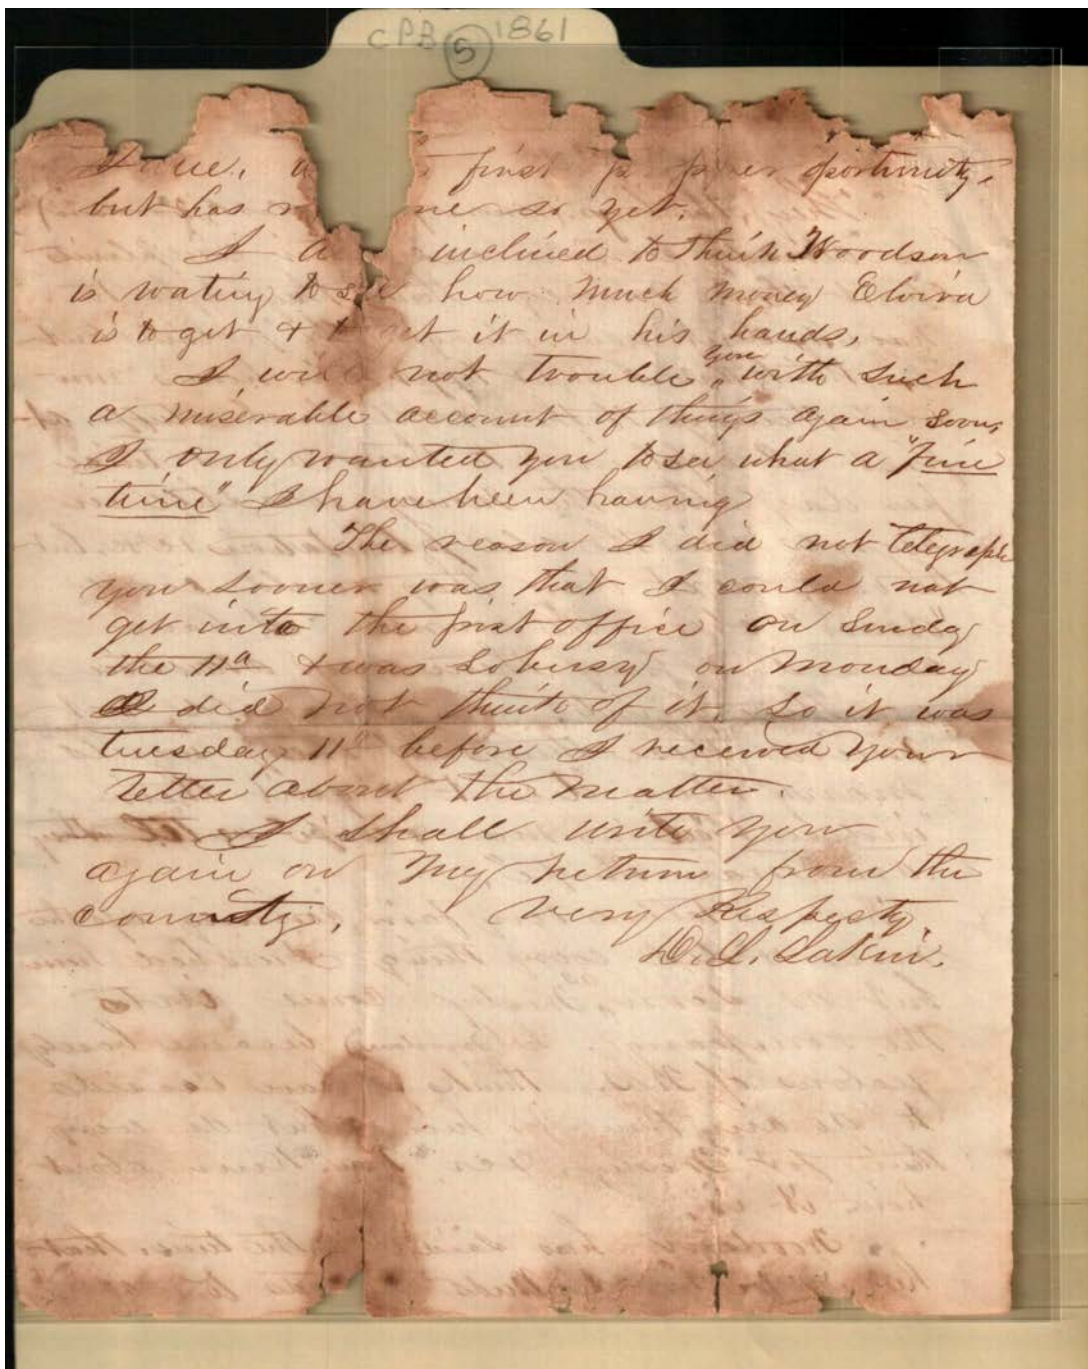 CPB 5 1861
first oportunity,
but has so yet.
I inclined to think Woodson
is wating to see how much money Elvira
is to get & to get it in his hands,
I will not trouble you with such
a miserable account of things again soon,
I only wanted you to see what a "fine
time" I have been having
The reason I did not telegraph
you sooner was that I could not
get into the post office on Sunday
the 11th & was so busy on Monday
I did not think of it. so it was
tuesday 11th before I received your
letter about the matter.
I shall write you
again on my return from the
country. Very Respecty.
D. L. Lakin.